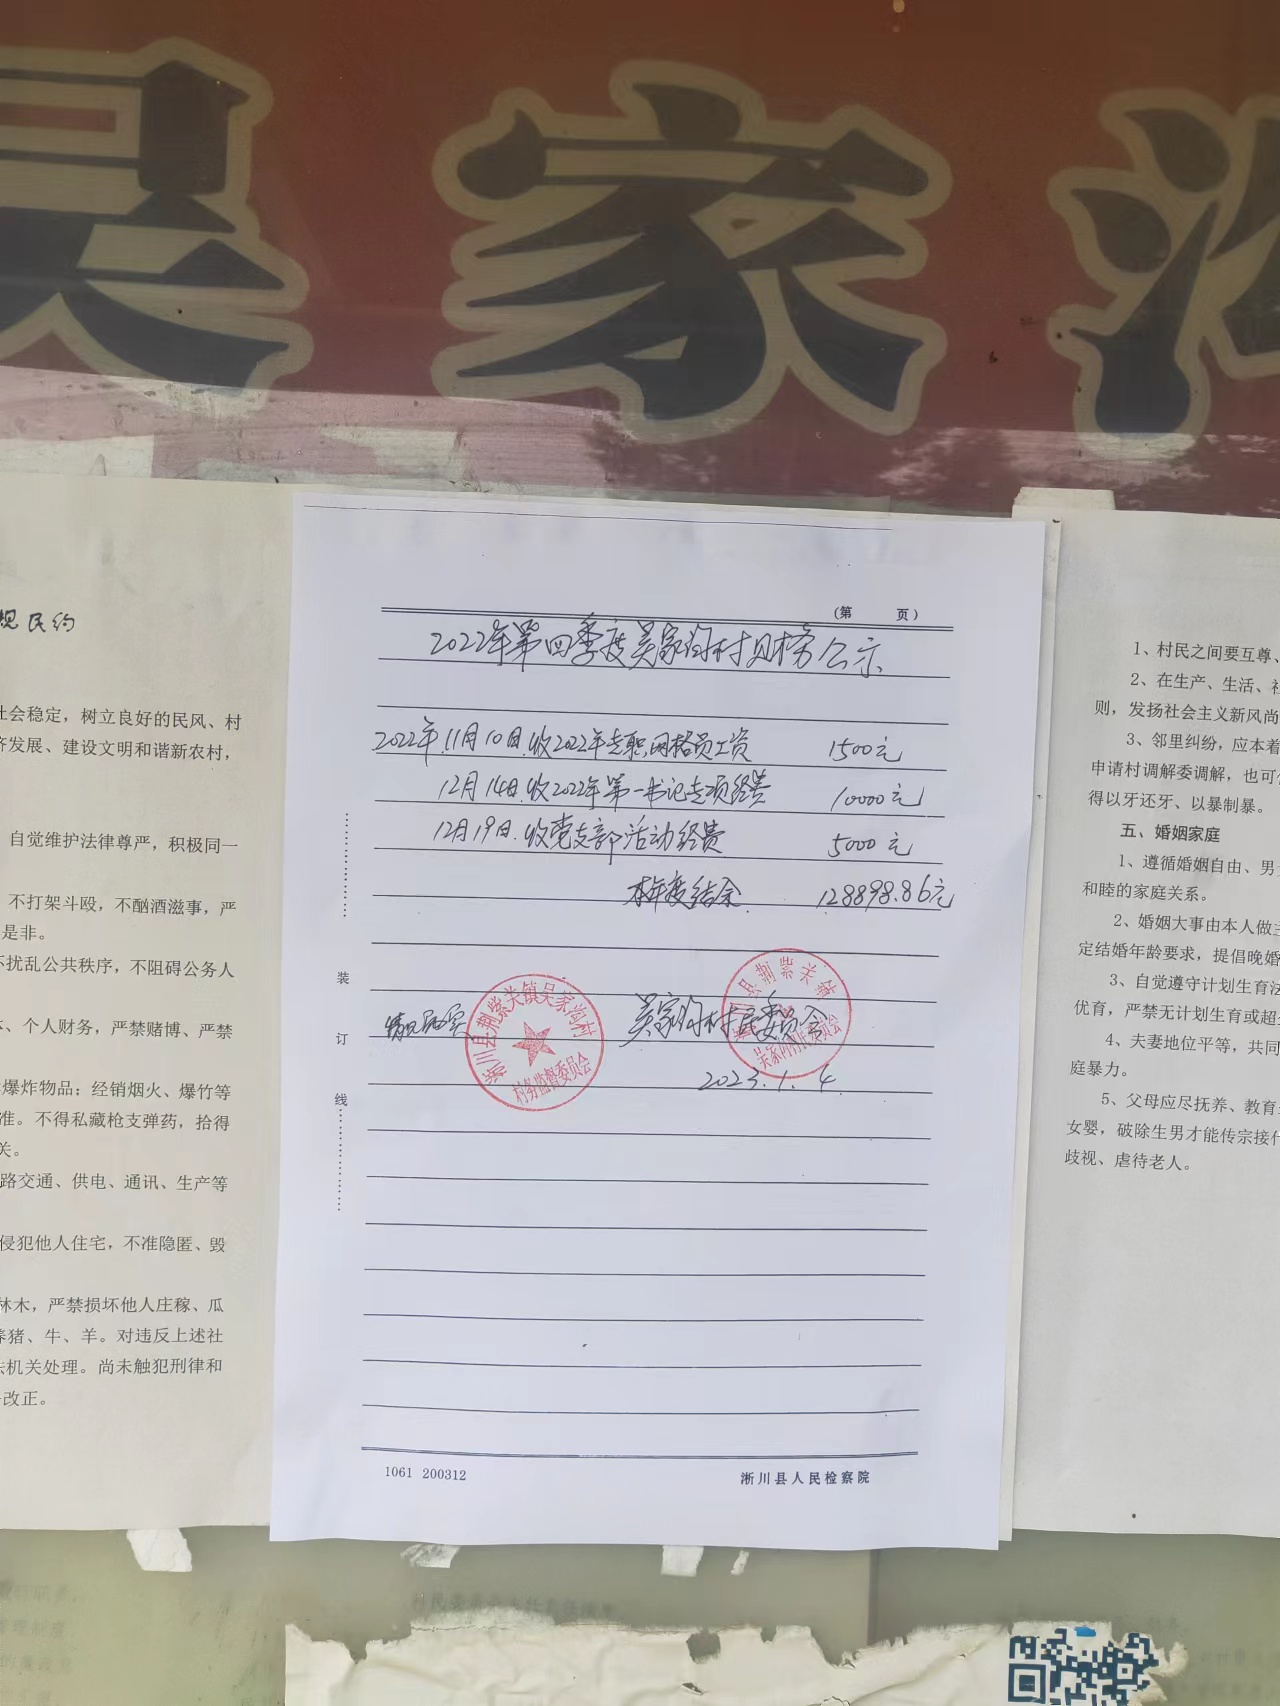 吴家沟
规民约
社会稳定，树立良好的民风、村
济发展、建设文明和谐新农村，
自觉维护法律尊严，积极同一
不打架斗殴，不酗酒滋事，严
是非。
不扰乱公共秩序，不阻碍公务人
、个人财务，严禁赌博、严禁
爆炸物品；经销烟火、爆竹等
准。不得私藏枪支弹药，拾得
关。
路交通、供电、通讯、生产等
侵犯他人住宅，不准隐匿、毁
林木，严禁损坏他人庄稼、瓜
养猪、牛、羊。对违反上述社
法机关处理。尚未触犯刑律和
改正。
(第 页)
2022年第四季度吴家沟村财务公示
2022年11月10日收2022年专职网格员工资 1500元
12月14日收2022年第一书记专项经费 10000元
12月19日收党支部活动经费 5000元
本年度结余 128898.86元
情况属实 吴家沟村民委员会
2023.1.4
淅川县荆紫关镇吴家沟村
村务监督委员会
淅川县荆紫关镇
吴家沟村民委员会
装
订
线
1061 200312
淅川县人民检察院
1、村民之间要互尊、
2、在生产、生活、社
则，发扬社会主义新风尚
3、邻里纠纷，应本着
申请村调解委调解，也可
得以牙还牙、以暴制暴。
五、婚姻家庭
1、遵循婚姻自由、男
和睦的家庭关系。
2、婚姻大事由本人做主
定结婚年龄要求，提倡晚婚
3、自觉遵守计划生育法
优育，严禁无计划生育或超
4、夫妻地位平等，共同
庭暴力。
5、父母应尽抚养、教育
女婴，破除生男才能传宗接代
歧视、虐待老人。